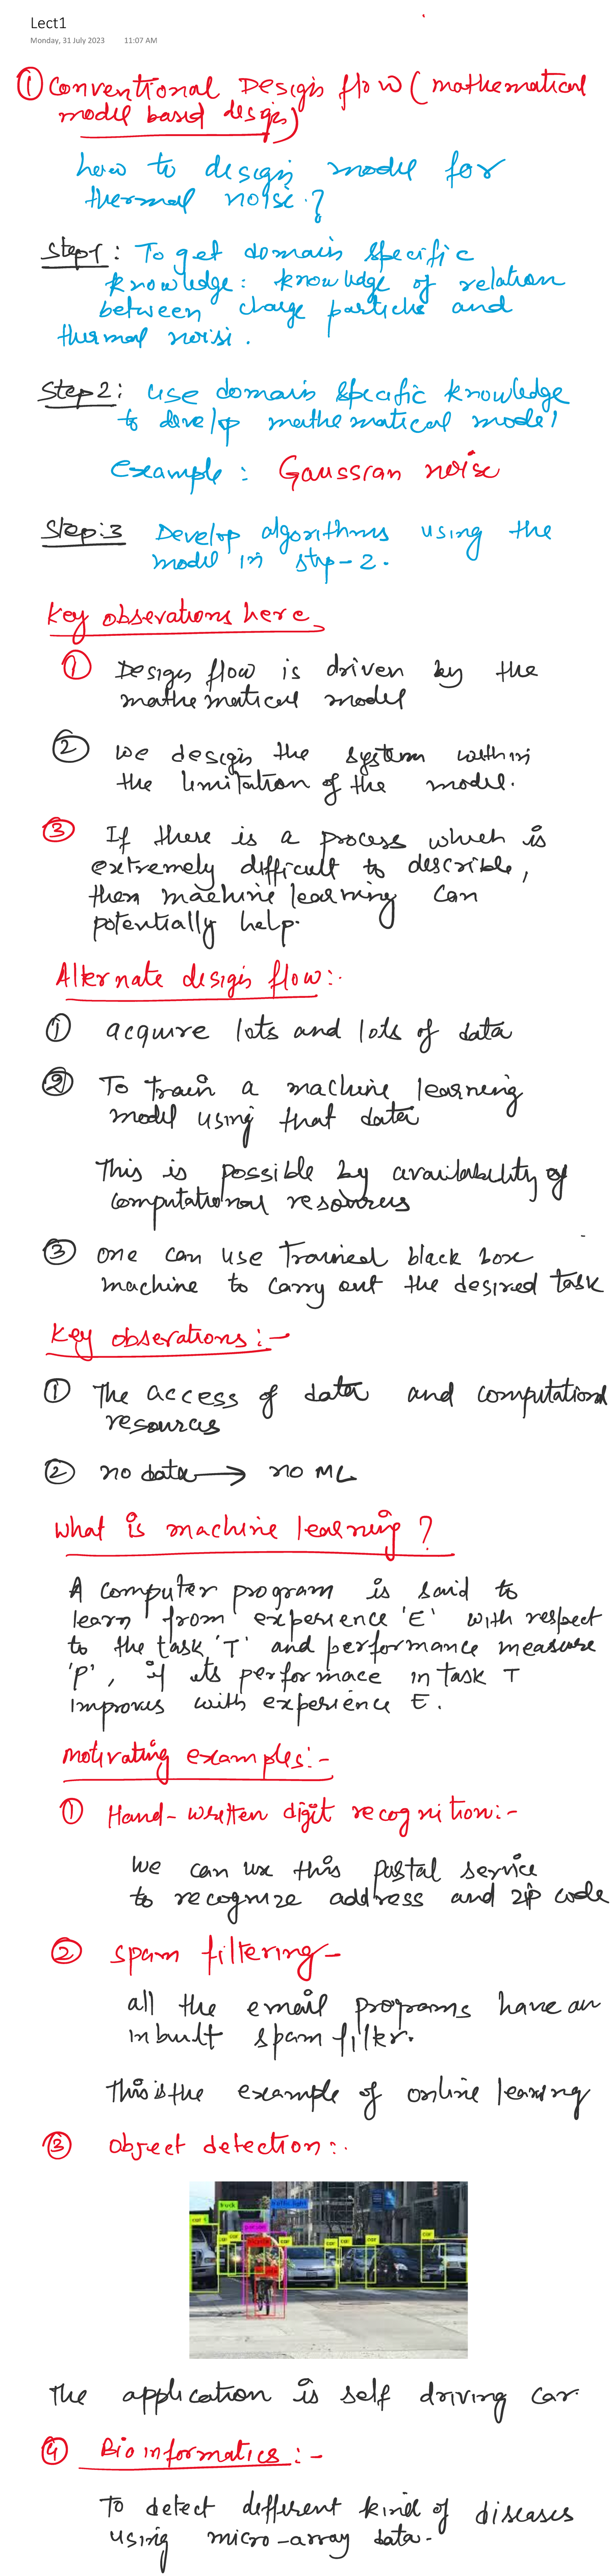 Lect1
Monday, 31 July 2023 11:07 AM
① Conventional Design flow (mathematical
model based design)
how to design model for
thermal noise ?
Step1 : To get domain specific
knowledge : knowledge of relation
between charge particle and
thermal noise .
Step2 : use domain specific knowledge
to develop mathematical model
Example : Gaussian noise
Step:3 Develop algorithms using the
model in step-2.
Key obserations here,
① Design flow is driven by the
mathematical model
② we design the system within
the limitation of the model.
③ If there is a process which is
extremely difficult to describle,
then machine learning can
potentially help.
Alternate design flow:.
① acquire lots and lots of data
② To train a machine learning
model using that data
This is possible by availability of
computational resources
③ one can use trained black box
machine to carry out the desired task
Key obserations :-
① The access of data and computational
resources
② no data → no ML
What is machine learning ?
A computer program is said to
learn from experience 'E' with respect
to the task 'T' and performance measure
'P', if its performace in task T
improves with experience E.
Motivating examples:-
① Hand-written digit recognition:-
We can use this postal service
to recognize address and zip code
② Spam filtering-
all the email programs have an
inbuilt spam filter.
This is the example of online learning
③ Object detection:.
truck
traffic light
car
car
car
car
car
car
The application is self driving car.
④ Bioinformatics :-
To detect different kind of diseases
using micro-array data.